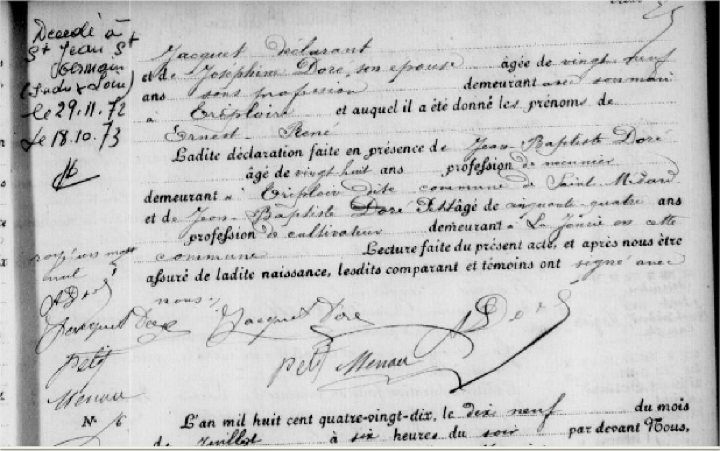 Décédé à
St Jean St
Germain
(Indre & Loire)
le 29.11.72
Le 18.10.73
Jacquet déclarant
et de Joséphine Doré, son épouse âgée de vingt neuf
ans sans profession demeurant avec son mari
à Tréploire et auquel il a été donné les prénoms de
Ernest René
Ladite déclaration faite en présence de Jean-Baptiste Doré
âgé de vingt huit ans profession de meunier
demeurant à Tréploir dite commune de Saint Médard
et de Jean-Baptiste Doré Petit âgé de cinquante quatre ans
profession de cultivateur demeurant à La Joncié en cette
commune Lecture faite du présent acte, et après nous être
assuré de ladite naissance, lesdits comparant et témoins ont signé avec
nous.
rayé un mot
nul
Doré
Jacquet Doré
Petit
Menau
Jacquet Doré
Doré
Petit Menau
N° 16
L'an mil huit cent quatre-vingt-dix, le dix neuf du mois
de Juillet à six heures du soir par devant Nous,